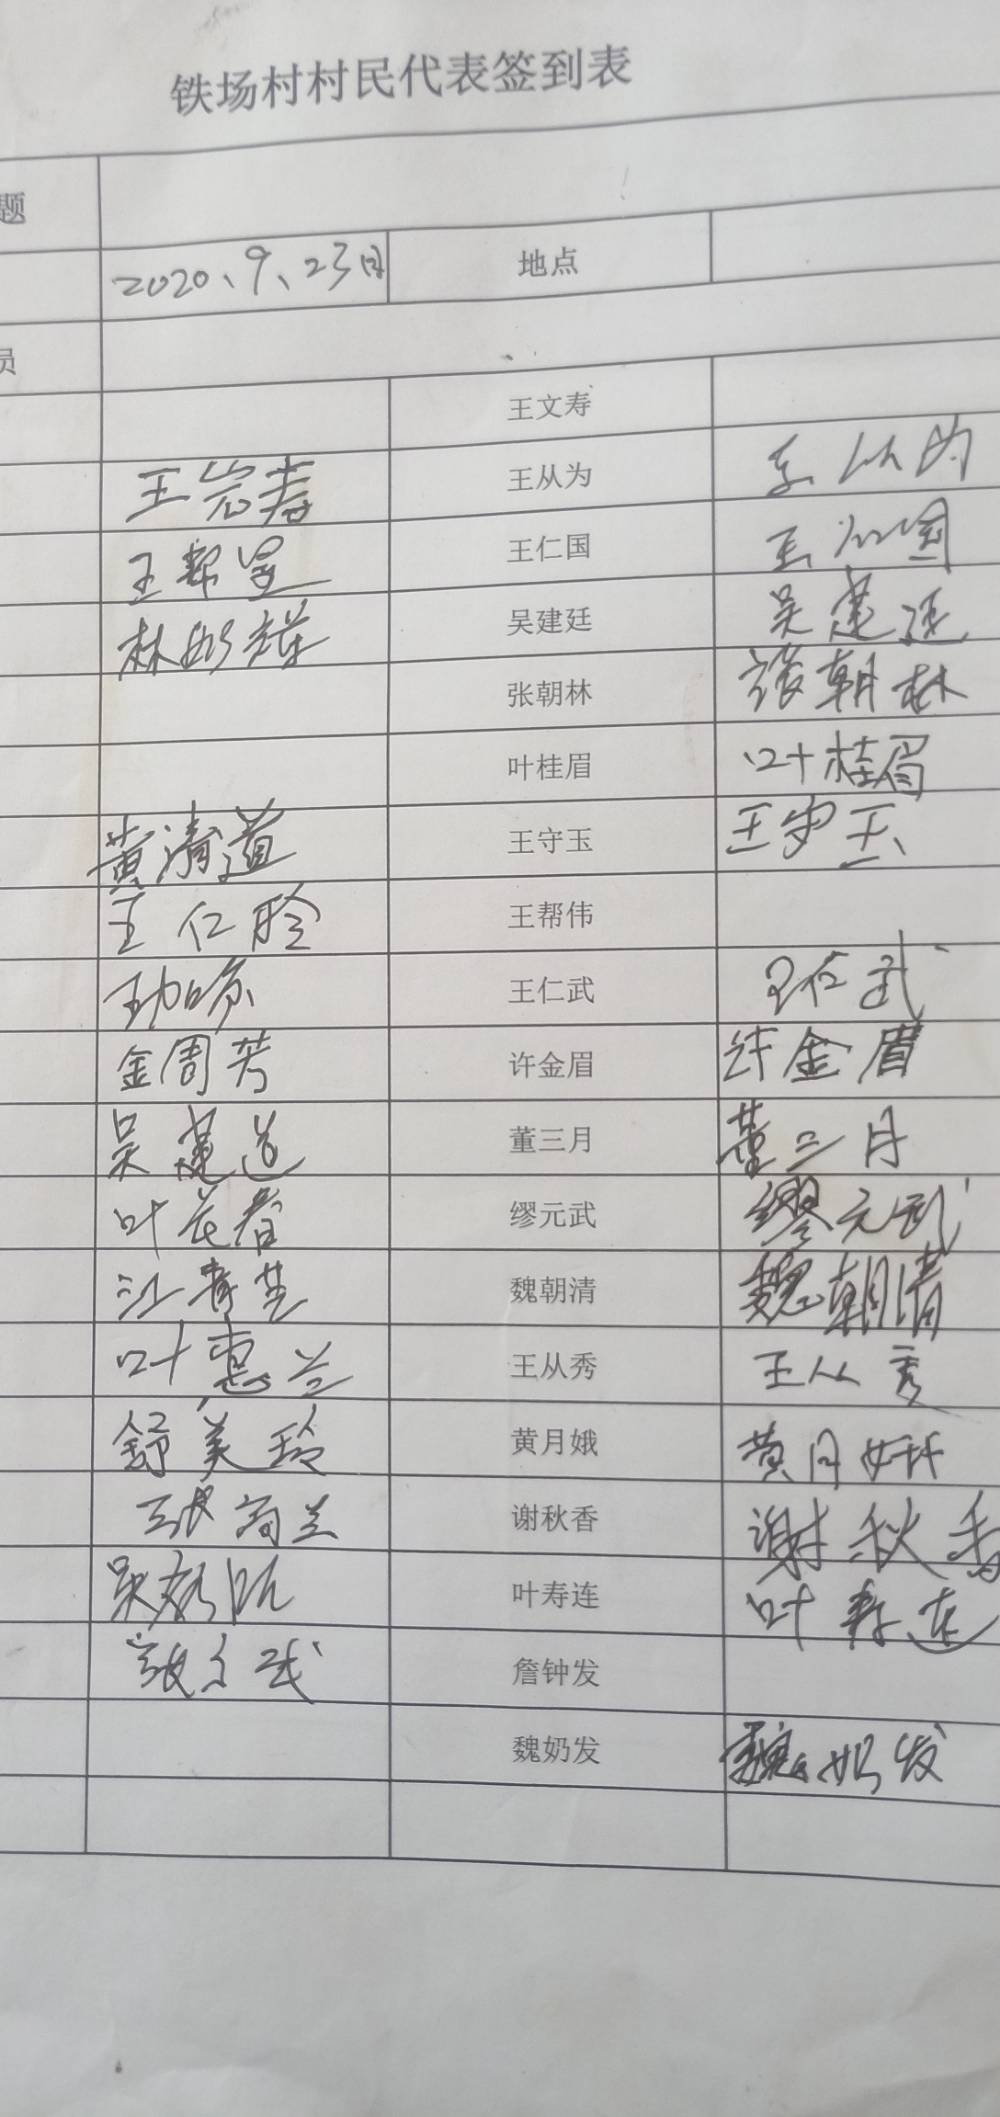 铁场村村民代表签到表
题
2020、9、23日 地点
员
王文寿
王岩寿 王从为 王从为
王帮星 王仁国 王仁国
林 辉 吴建廷 吴建廷
张朝林 张朝林
叶桂眉 叶桂眉
黄清道 王守玉 王守玉
王仁聆 王帮伟
王仁武 王仁武
金周芳 许金眉 许金眉
吴建道 董三月 董三月
叶花春 缪元武 缪元武
江青芝 魏朝清 魏朝清
叶惠兰 王从秀 王从秀
舒美玲 黄月娥 黄月娥
张高兰 谢秋香 谢秋香
吴 叶寿连 叶寿连
张 武 詹钟发
魏奶发 魏奶发